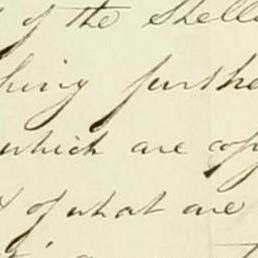 of the Shell
hing furthe
which are cop
of what are